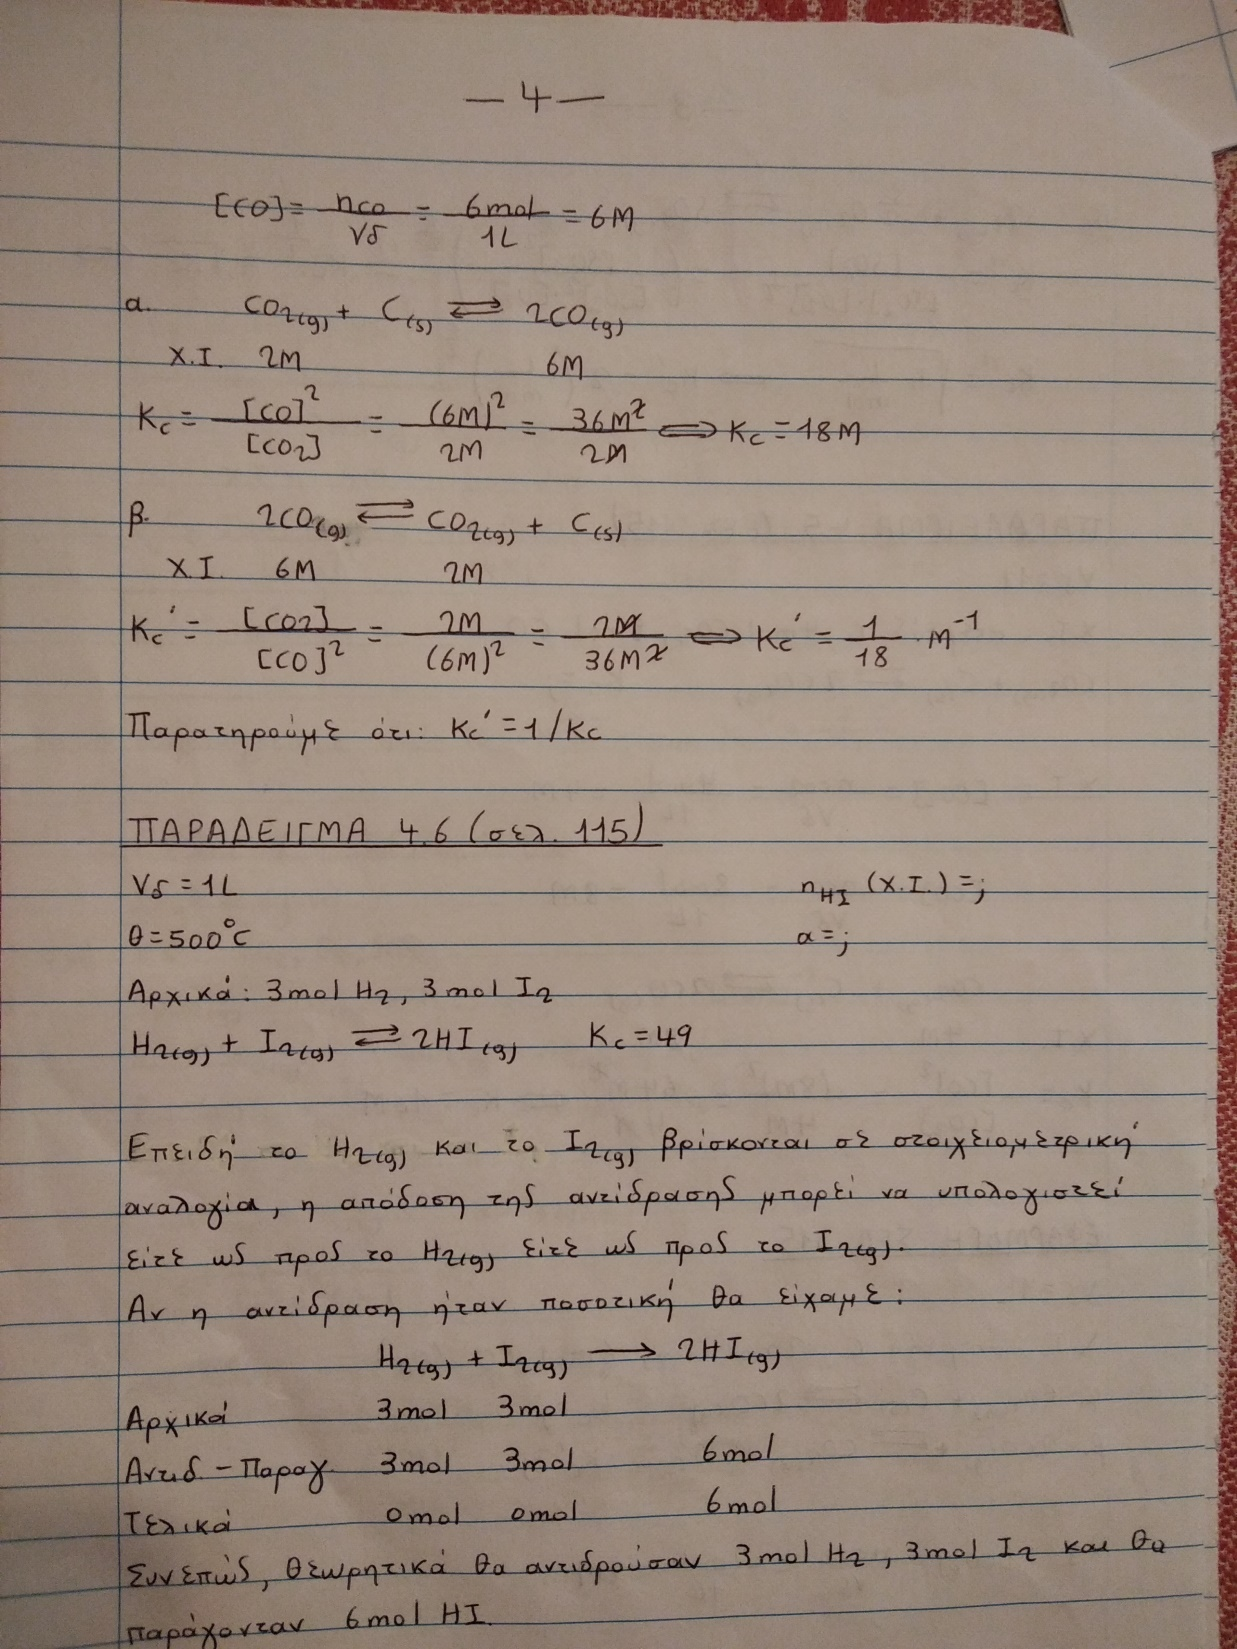 — 4 —
[CO] = nCO/Vδ = 6mol/1L = 6M
α. CO2(g) + C(s) ⇌ 2CO(g)
Χ.Ι. 2M 6M
Kc = [CO]²/[CO2] = (6M)²/2M = 36M²/2M ⇔ Kc = 18M
β. 2CO(g) ⇌ CO2(g) + C(s)
Χ.Ι. 6M 2M
Kc' = [CO2]/[CO]² = 2M/(6M)² = 2M/36M² ⇔ Kc' = 1/18 · M⁻¹
Παρατηρούμε ότι: Kc' = 1/Kc
ΠΑΡΑΔΕΙΓΜΑ 4.6 (σελ. 115)
Vδ = 1L nHI (Χ.Ι.) = ;
θ = 500°C α = ;
Αρχικά: 3mol H2, 3mol I2
H2(g) + I2(g) ⇌ 2HI(g) Kc = 49
Επειδή το H2(g) και το I2(g) βρίσκονται σε στοιχειομετρική
αναλογία, η απόδοση της αντίδρασης μπορεί να υπολογιστεί
είτε ως προς το H2(g) είτε ως προς το I2(g).
Αν η αντίδραση ήταν ποσοτική θα είχαμε:
H2(g) + I2(g) → 2HI(g)
Αρχικά 3mol 3mol
Αντιδ. - Παραγ. 3mol 3mol 6mol
Τελικά 0mol 0mol 6mol
Συνεπώς, θεωρητικά θα αντιδρούσαν 3mol H2, 3mol I2 και θα
παράγονταν 6mol HI.